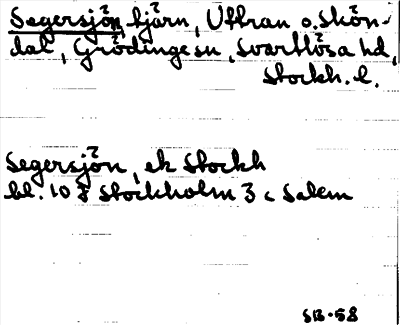 Segersjön, tjärn, Uttran o. Skön-
dal, Grödinge sn, Svartlösa hd,
Stockh. l.
Segersjön, ek Stockh
bl. 10 I Stockholm 3 c Salem
SB-58